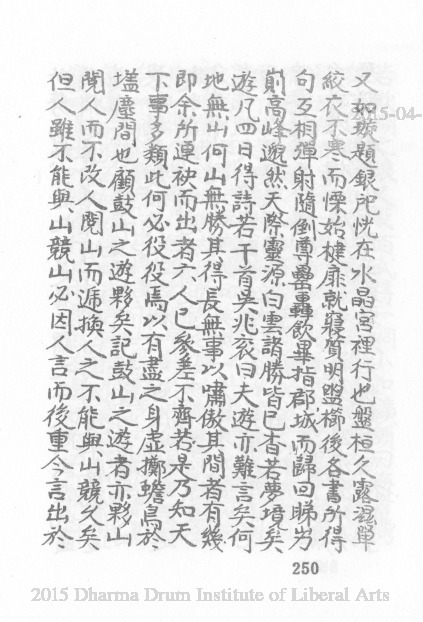 又如□題銀兜恍在水晶宮裡行也盤桓久露濕單
絞衣不寒而慄始楗扉就寢質明盥櫛後各書所得
句互相彈射隨倒罇罍轟飲畢指郡城而歸回睇屴
崱高峰邈然天際靈源白雲諸勝皆已杳若夢境矣
遊凡四日得詩若干首吳兆袞曰夫遊亦難言矣何
地無山何山無勝其得長無事以嘯傲其間者有幾
即余所連袂而出者六人已參差不齊若是乃知天
下事多類此何必役役焉以有盡之身虛擲蟾烏於
壒塵間也顧鼓山之遊夥矣記鼓山之遊者亦夥山
閱人而不改人閱山而遞換人之不能與山競久矣
但人雖不能與山競山必因人言而後重今言出於
250
2015-04-
2015 Dharma Drum Institute of Liberal Arts